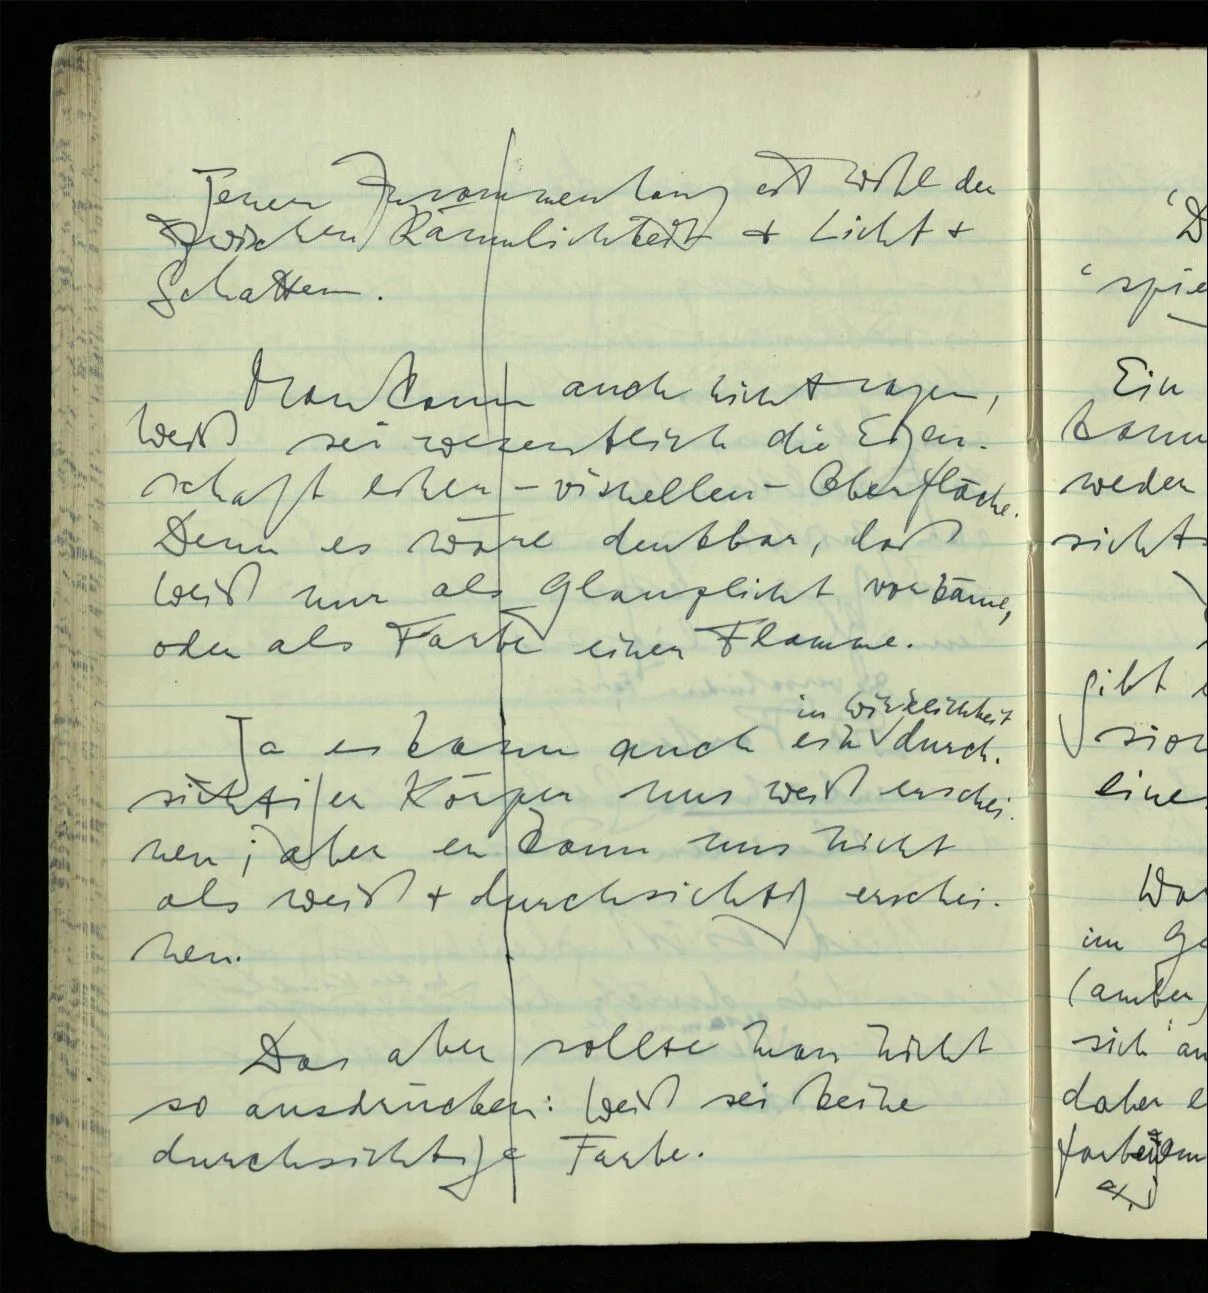 Jener Zusammenhang ist wohl der
zwischen Räumlichkeit + Licht +
Schatten.
Man kann auch nicht sagen,
Weiß sei wesentlich die Eigen-
schaft einer – visuellen – Oberfläche.
Denn es wäre denkbar, daß
Weiß nur als Glanzlicht vorkäme,
oder als Farbe einer Flamme.
in Wirklichkeit
Ja es kann auch ein durch-
sichtiger Körper uns weiß erschei-
nen; aber er kann uns nicht
als weiß + durchsichtig erschei-
nen.
Das aber sollte man nicht
so ausdrücken: Weiß sei keine
durchsichtige Farbe.
'D
'spie
Ein
kann
weder
sichts
gibt
eines
im
sich
daher